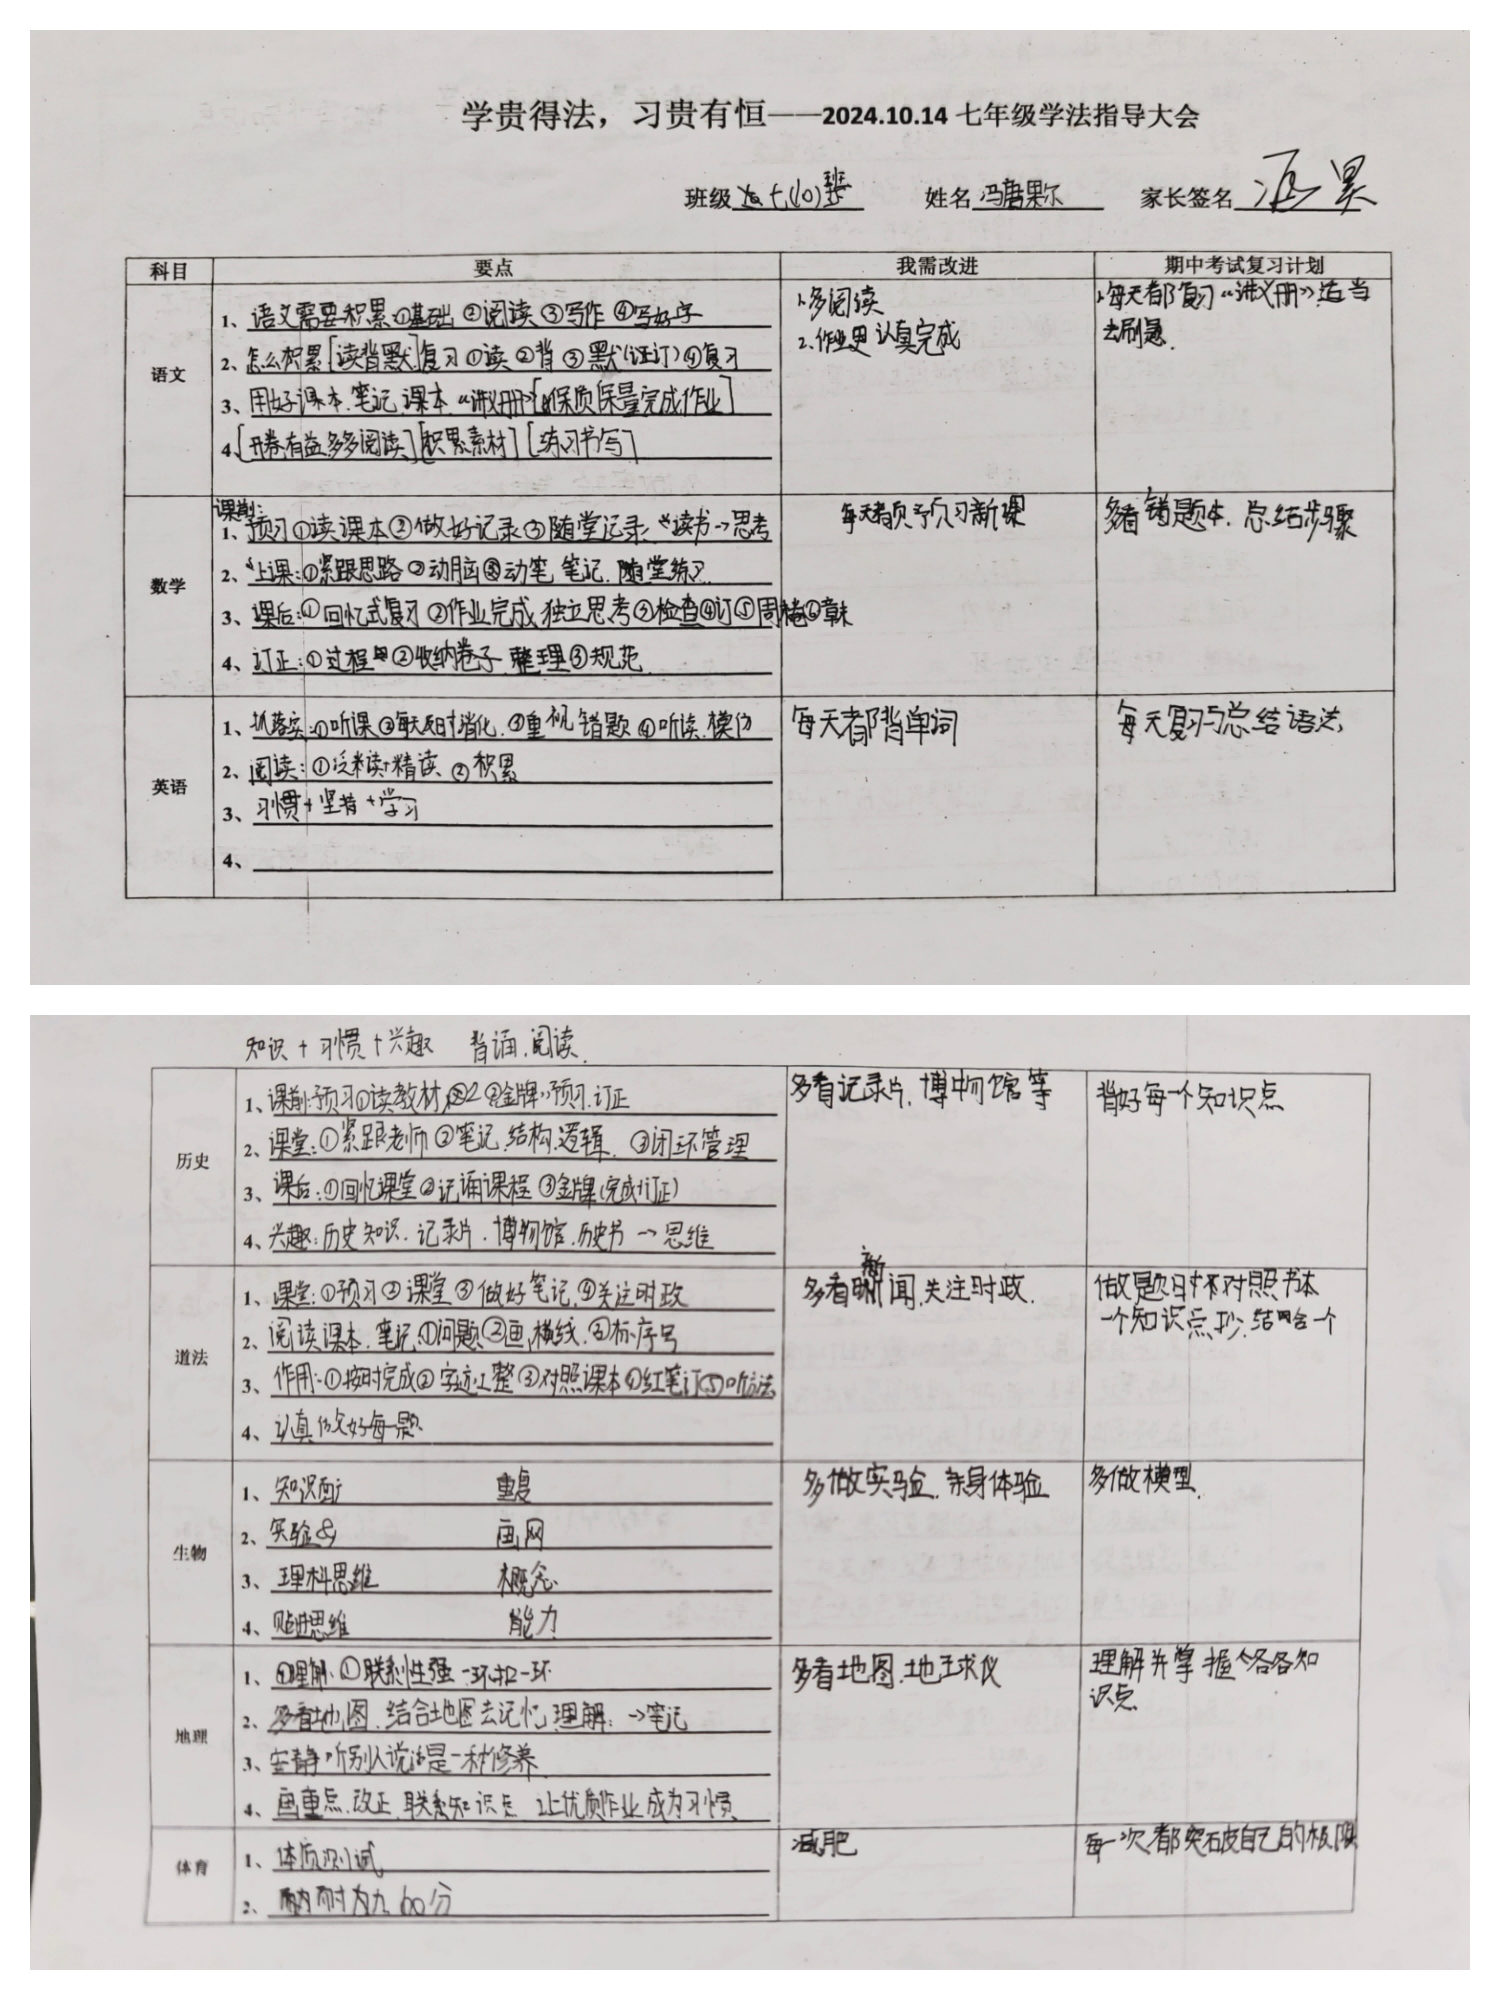 学贵得法，习贵有恒——2024.10.14 七年级学法指导大会
班级 七(10)班 姓名 冯唐果尔 家长签名
科目 要点 我需改进 期中考试复习计划
语文
1、语文需要积累①基础 ②阅读 ③写作 ④写好字
2、怎么积累[读背默]复习①读②背③默(订)④复习
3、用好课本.笔记 课本.“讲义册”[保质保量完成作业]
4、[开卷有益.多多阅读][积累素材][练习书写]
1.多阅读
2.作业更认真完成
1.每天都复习“讲义册”适当
去刷题.
数学
课前:
1、预习①读课本②做好记录③随堂记录 读书→思考
2、上课:①紧跟思路②动脑③动笔 笔记.随堂练习
3、课后:①回忆式复习②作业完成 独立思考③检查④订⑤周卷⑥章末
4、订正:①过程 ②收纳卷子 整理③规范
每天都预习新课
多看错题本.总结步骤
英语
1、抓落实:①听课②每天及时消化.③重视错题④听读.模仿
2、阅读:①泛读+精读 ②积累
3、习惯+坚持+学习
4、
每天都背单词
每天复习与总结语法
知识+习惯+兴趣 背诵.阅读.
历史
1、课前:预习①读教材 ②金牌预习.订正
2、课堂:①紧跟老师②笔记.结构.逻辑. ③闭环管理
3、课后:①回忆课堂②记诵课程③金牌(完成+订正)
4、兴趣:历史知识.记录片.博物馆.历史书→思维
多看记录片.博物馆等
背好每一个知识点
道法
1、课堂:①预习②课堂③做好笔记.④关注时政
2、阅读课本.笔记.①问题②画横线.③标序号
3、作用:①按时完成②字迹工整③对照课本④红笔订⑤听方法
4、认真做好每一题.
多看新闻.关注时政.
做题时对照书本
一个知识点抄.结合一个
生物
1、知识面广 重复
2、实验 画网
3、理科思维 概念
4、思维 能力
多做实验.亲身体验
多做模型.
地理
1、理解.①联系性强 一环扣一环
2、多看地图.结合地图去记忆.理解:→笔记
3、安静听别人说话是一种修养
4、画重点.改正.联系知识点 让优质作业成为习惯.
多看地图.地球仪
理解并掌握各知
识点.
体育
1、体质测试
2、耐力 60分
减肥
每一次都突破自己的极限